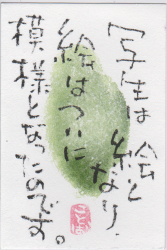 写生は絵となり
絵はついに
模様となったのです。